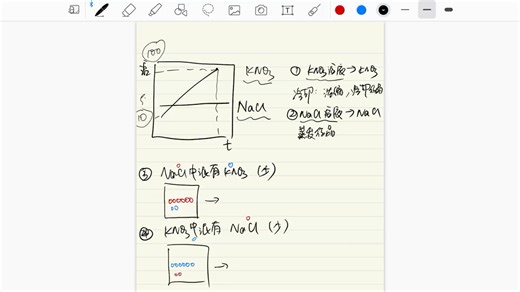 100
KNO₃
① KNO₃溶质→KNO₃
冷却:浓缩,冷却结晶
10
NaCl
② NaCl溶质→NaCl
蒸发结晶
t
① NaCl中混有KNO₃(少)
→
② KNO₃中混有 NaCl(少)
→